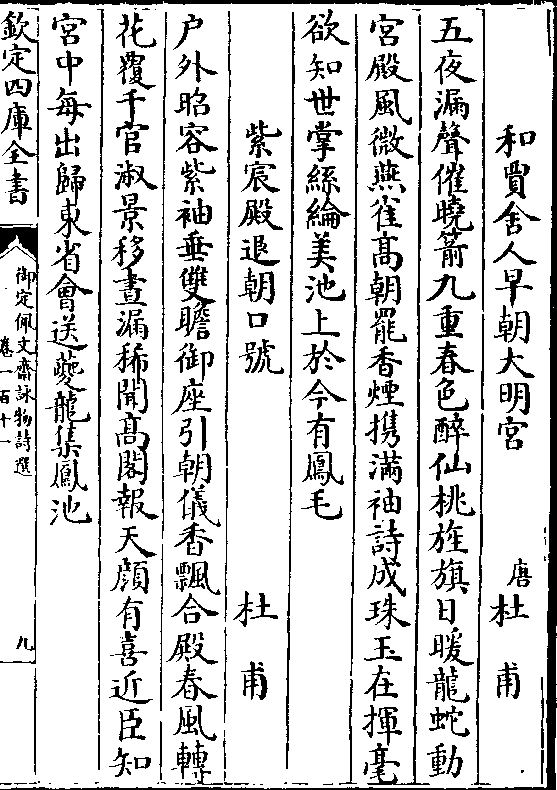 和賈舍人早朝大明宮　唐杜甫
五夜漏聲催曉箭九重春色醉仙桃旌旗日暖龍蛇動
宮殿風微燕雀髙朝罷香煙携滿袖詩成珠玉在揮毫
欲知世掌絲綸美池上於今有鳳毛
紫宸殿退朝口號　杜甫
户外昭容紫袖垂雙瞻御座引朝儀香飄合殿春風轉
花覆千官淑景移晝漏稀聞髙閣報天顔有喜近臣知
宮中每出歸東省會送夔龍集鳳池
欽定四庫全書
御定佩文齋詠物詩選
卷一百十一
九